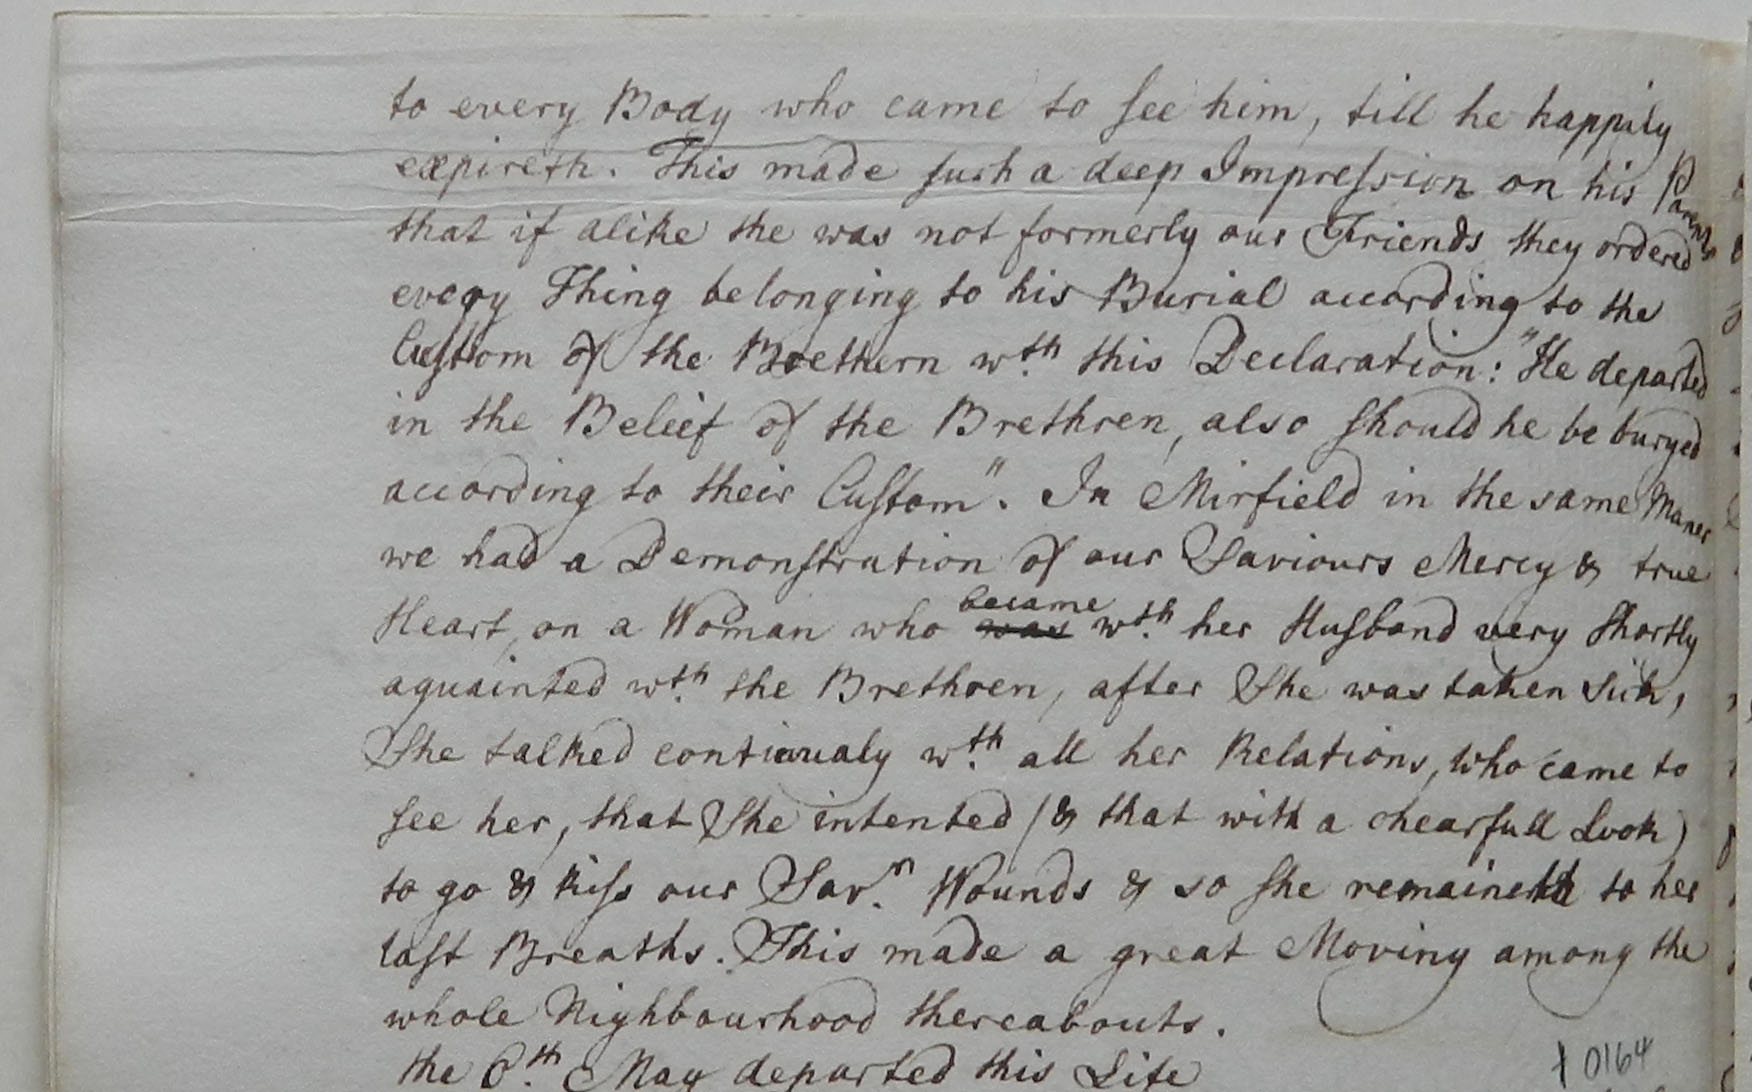 to every Body who came to see him, till he happily
expireth. This made such a deep Impression on his Parents
that if alike the was not formerly our Friends they ordered
every Thing belonging to his Burial according to the
Custom of the Brethern wth. this Declaration: "He departed
in the Beleif of the Brethren, also should he be buryed
according to their Custom". In Mirfield in the same Maner
we had a Demonstration of our Saviours Mercy & true
Heart, on a Woman who became was wth. her Husband very shortly
aquainted wth. the Brethren, after She was taken Sick,
She talked continualy wth. all her Relations, who came to
see her, that She intented (& that with a chearfull Look)
to go & kiss our Savrs. Wounds & so she remaineth to her
last Breaths. This made a great Moving among the
whole Nighbourhood thereabouts.
the 6th. May departed this Life
10164